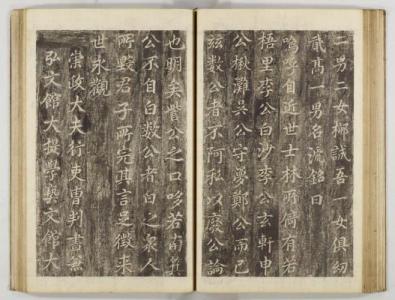 一男二女娜誠吾一女俱幼
貳髙一男名流銘曰
嗚呼自近世士林所僃有若
梧里李公白沙李公玄軒申
公楸灘吳公守夢鄭公而已
玆數公者不阿私以廢公論
也明矣訾公之口哆若南箕
公不自白數公者白之衆人
所毀君子所完其言是徵来
世永觀
崇政大夫行吏曹判書兼
弘文館大提學藝文館大